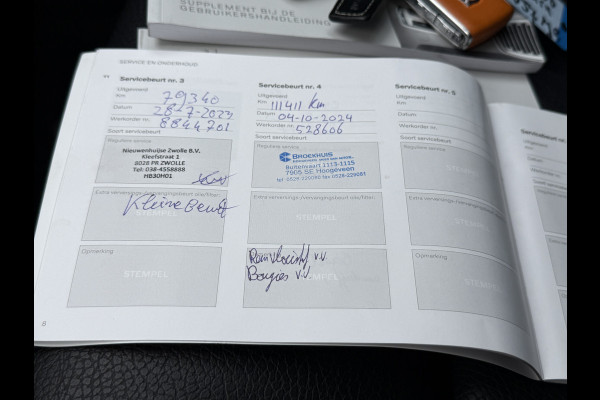 SUPPLEMENT BIJ DE
GEBRUIKERSHANDLEIDING
SERVICE EN ONDERHOUD
Servicebeurt nr. 3
Uitgevoerd
Km
79340
Datum
28-7-2023
Werkorder nr.
8844701
Soort servicebeurt
Reguliere service
Nieuwenhuijse Zwolle B.V.
Kleefstraat 1
8028 PR ZWOLLE
Tel: 038-4558888
HB30H01
Kleine Beurt
STEMPEL
Opmerking
STEMPEL
Servicebeurt nr. 4
Uitgevoerd
Km
111411 km
Datum
04-10-2024
Werkorder nr.
528606
Soort servicebeurt
Reguliere service
BROEKHUIS
Buitenvaart 1113-1115
7905 SE Hoogeveen
STEMPEL
Opmerking
Remvloeistof v.v
Bougies v.v
STEMPEL
Servicebeurt nr. 5
Uitgevoerd
Km
Datum
Werkorder nr.
Soort servicebeurt
Reguliere service
STEMPEL
Opmerking
STEMPEL
8